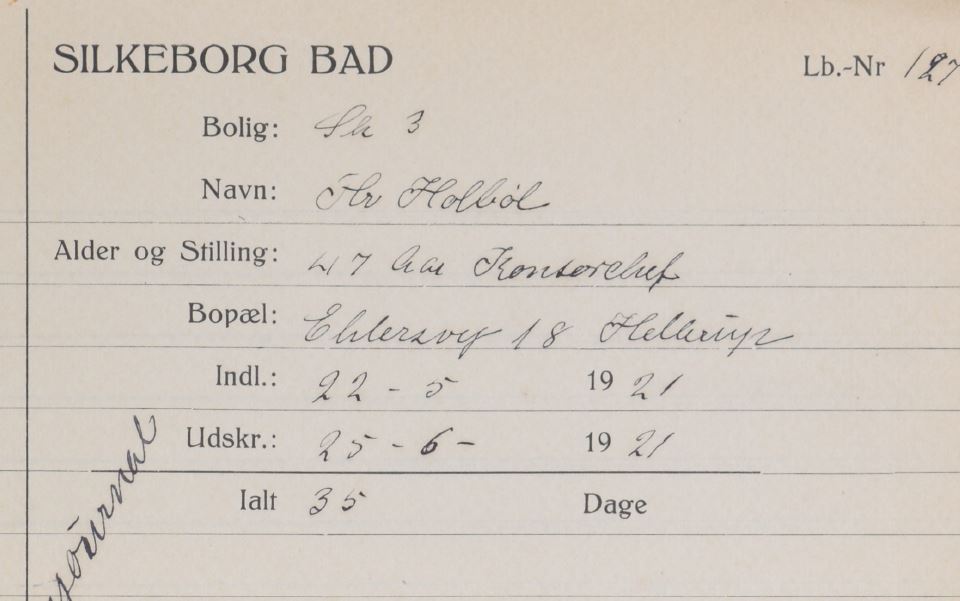 SILKEBORG BAD Lb.-Nr 127
Bolig: Sa 3
Navn: Hr Holbøl
Alder og Stilling: 47 Aar Kontorchef
Bopæl: Ehlersvej 18 Hellerup
Indl.: 22 - 5 1921
Udskr.: 25 - 6 - 1921
Ialt 35 Dage
journal